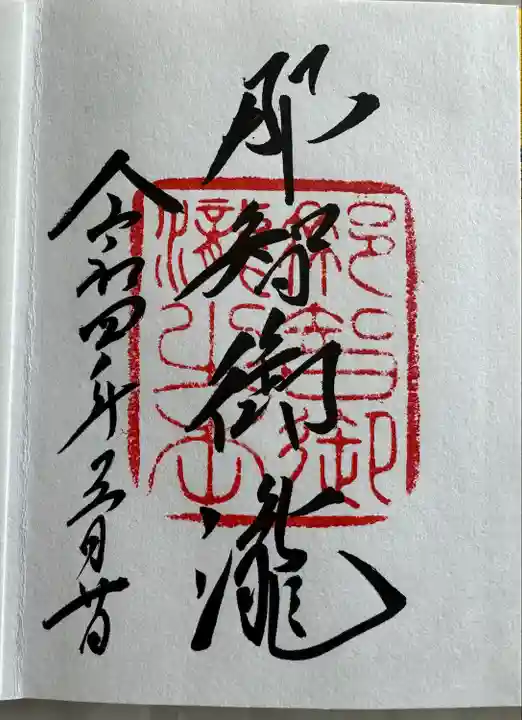 那智御瀧
令和四年五月廿日